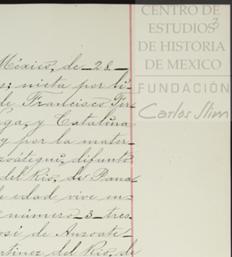 CENTRO DE
ESTUDIOS
3
DE HISTORIA
DE MEXICO
FUNDACIÓN
Carlos Slim
México, de 28
vista por
de Francisco
y Catalina
y por la mater
difunto
del Río, de
edad vive en
número 3 tres
José de Anzoate
Martínez del Río, de